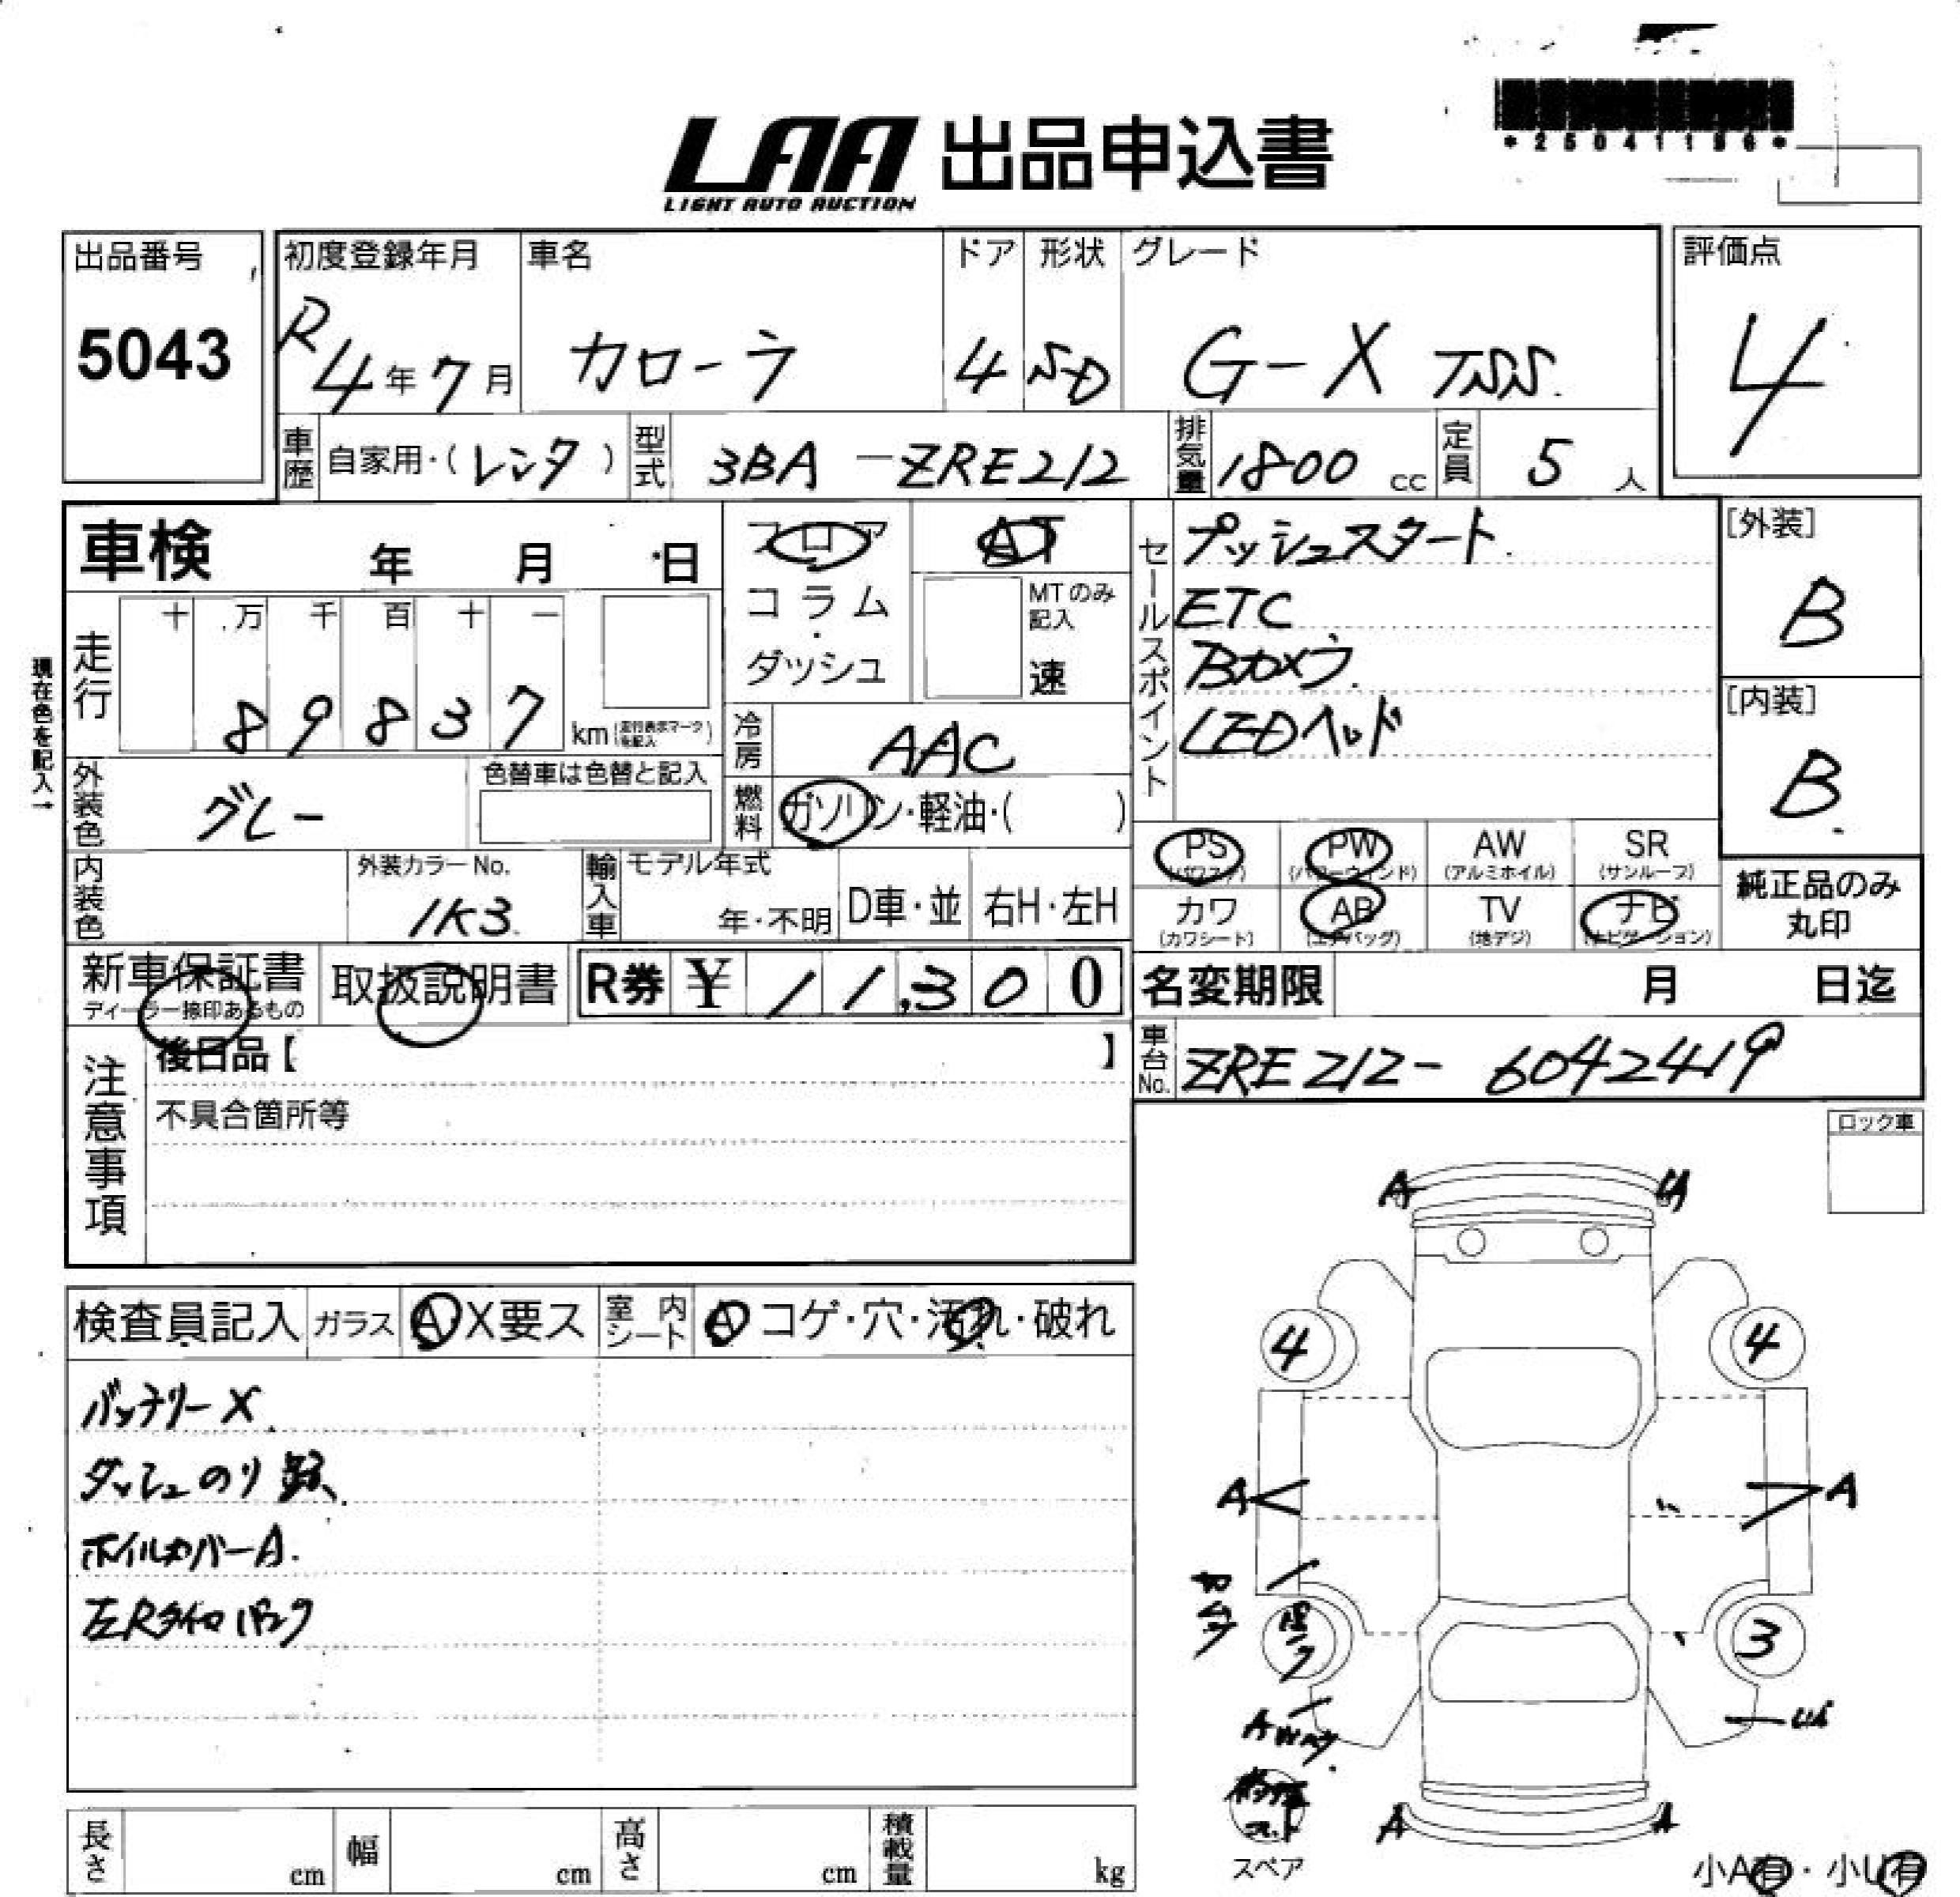 *25041196*
LAA 出品申込書
LIGHT AUTO AUCTION
出品番号 初度登録年月 車名 ドア 形状 グレード 評価点
5043 R4年7月 カローラ 4 SD G-X TSS. 4
車歴 自家用・(レンタ) 型式 3BA-ZRE212 排気量 1800cc 定員 5人
車検 年 月 日 フロア AT
コラム・ダッシュ MTのみ記入 速
走行 十 万 千 百 十 一
89837 km (走行表示マークを記入)
現在色を記入→
冷房 AAC
外装色 グレー 色替車は色替と記入
燃料 ガソリン・軽油・( )
内装色 外装カラーNo. 1K3
輸入車 モデル年式 年・不明 D車・並 右H・左H
セールスポイント
プッシュスタート
ETC
Bカメラ
LEDヘッド
[外装] B
[内装] B
PS (パワステ) PW (パワーウィンド) AW (アルミホイル) SR (サンルーフ)
カワ (カワシート) AB (エアバッグ) TV (地デジ) ナビ (ナビゲーション)
純正品のみ丸印
新車保証書 ディーラー捺印あるもの 取扱説明書 R券 ¥11,300
名変期限 月 日迄
車台No. ZRE212-6042419
注意事項
後日品【 】
不具合箇所等
ロック車
検査員記入 ガラス A X要ス 室内シート A コゲ・穴・汚れ・破れ
バッテリーX
ダッシュのり跡
ホイルカバーA.
左Rタイヤパンク
A U
4 4
A A
パンク 3
A
A A
スペア
小A有・小U有
長さ cm 幅 cm 高さ cm 積載量 kg